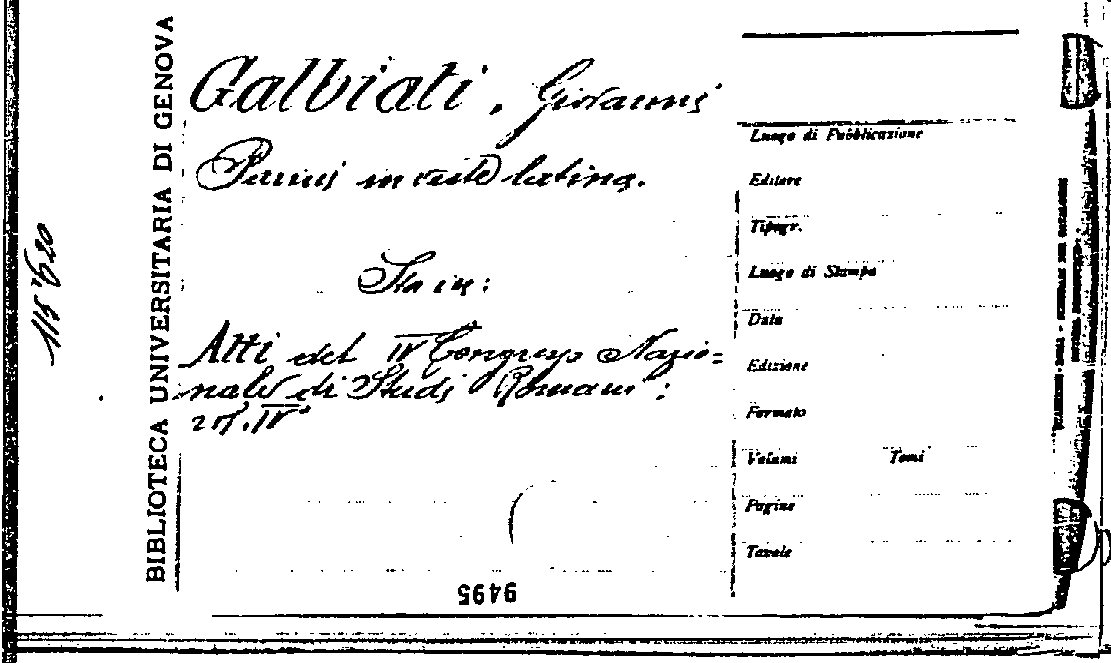 BIBLIOTECA UNIVERSITARIA DI GENOVA
Galbiati, Giovanni
in veste latina.
Sta in:
Atti del IV Congresso Nazio=
nale di Studi Romani:
vol. IV°
9495
Luogo di Pubblicazione
Editore
Tipogr.
Luogo di Stampa
Data
Edizione
Formato
Volumi Tomi
Pagine
Tavole